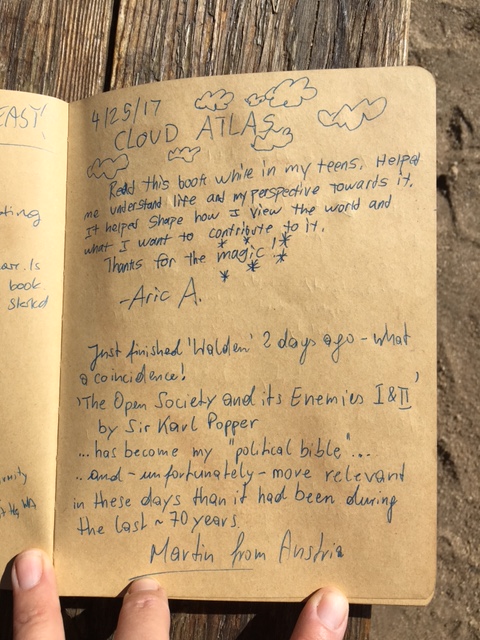 EAST!
ating
Is
book.
4/25/17
CLOUD ATLAS
Read this book while in my teens. Helped
me understand life and my perspective towards it.
It helped shape how I view the world and
what I want to contribute to it.
Thanks for the magic!
-Aric A.
Just finished 'Walden' 2 days ago - what
a coincidence!
'The Open Society and its Enemies I & II'
by Sir Karl Popper
...has become my "political bible"...
..and - unfortunately - more relevant
in these days than it had been during
the last ~ 70 years.
Martin from Austria